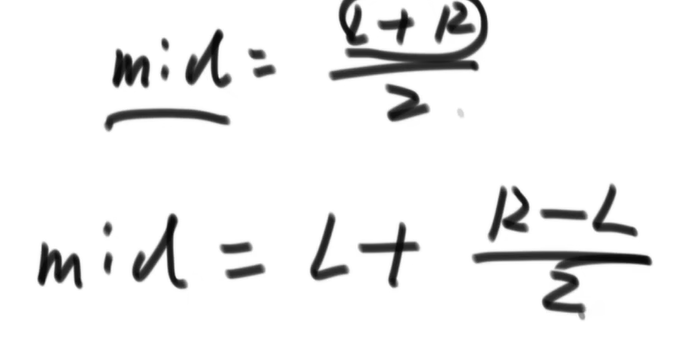 mid = (L + R) / 2
mid = L + (R - L) / 2